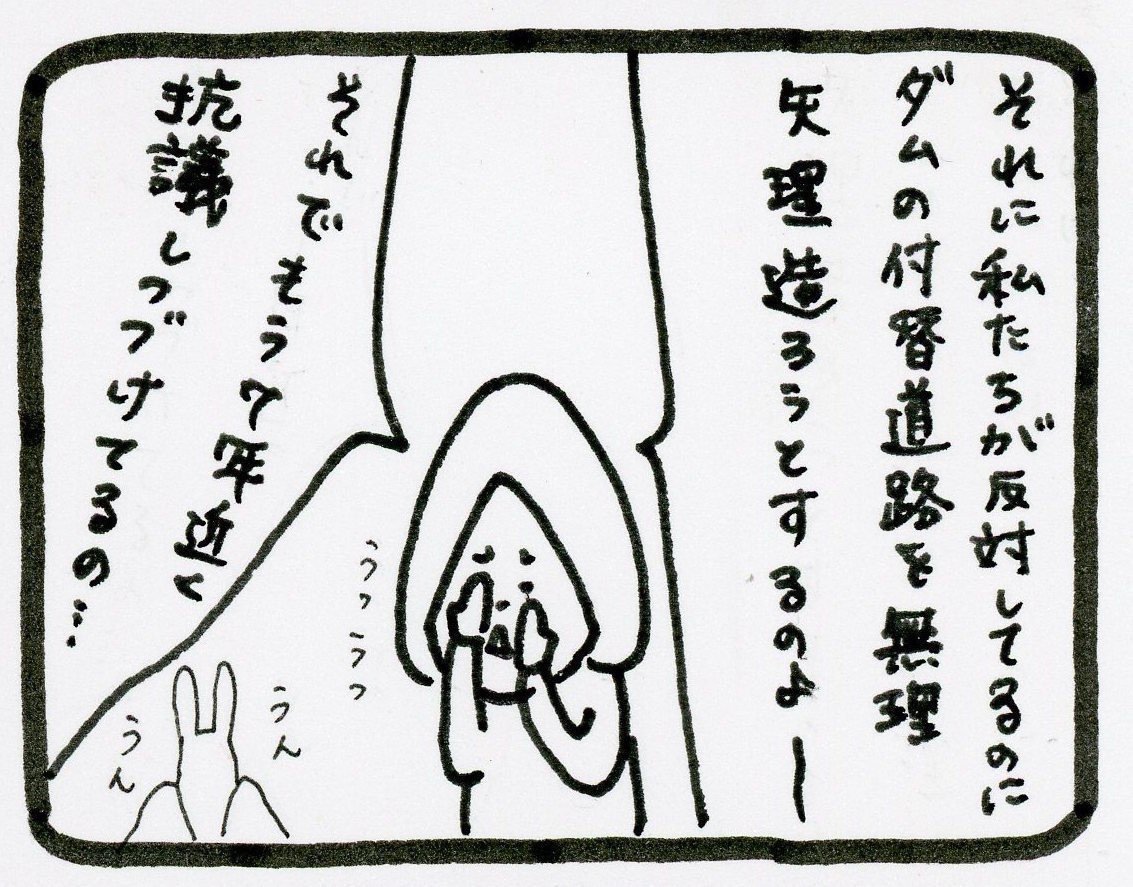 それに私たちが反対してるのに
ダムの付替道路を無理
矢理造ろうとするのよー
それでもう7年近く
抗議しつづけてるの…
うっうっ
うん
うん